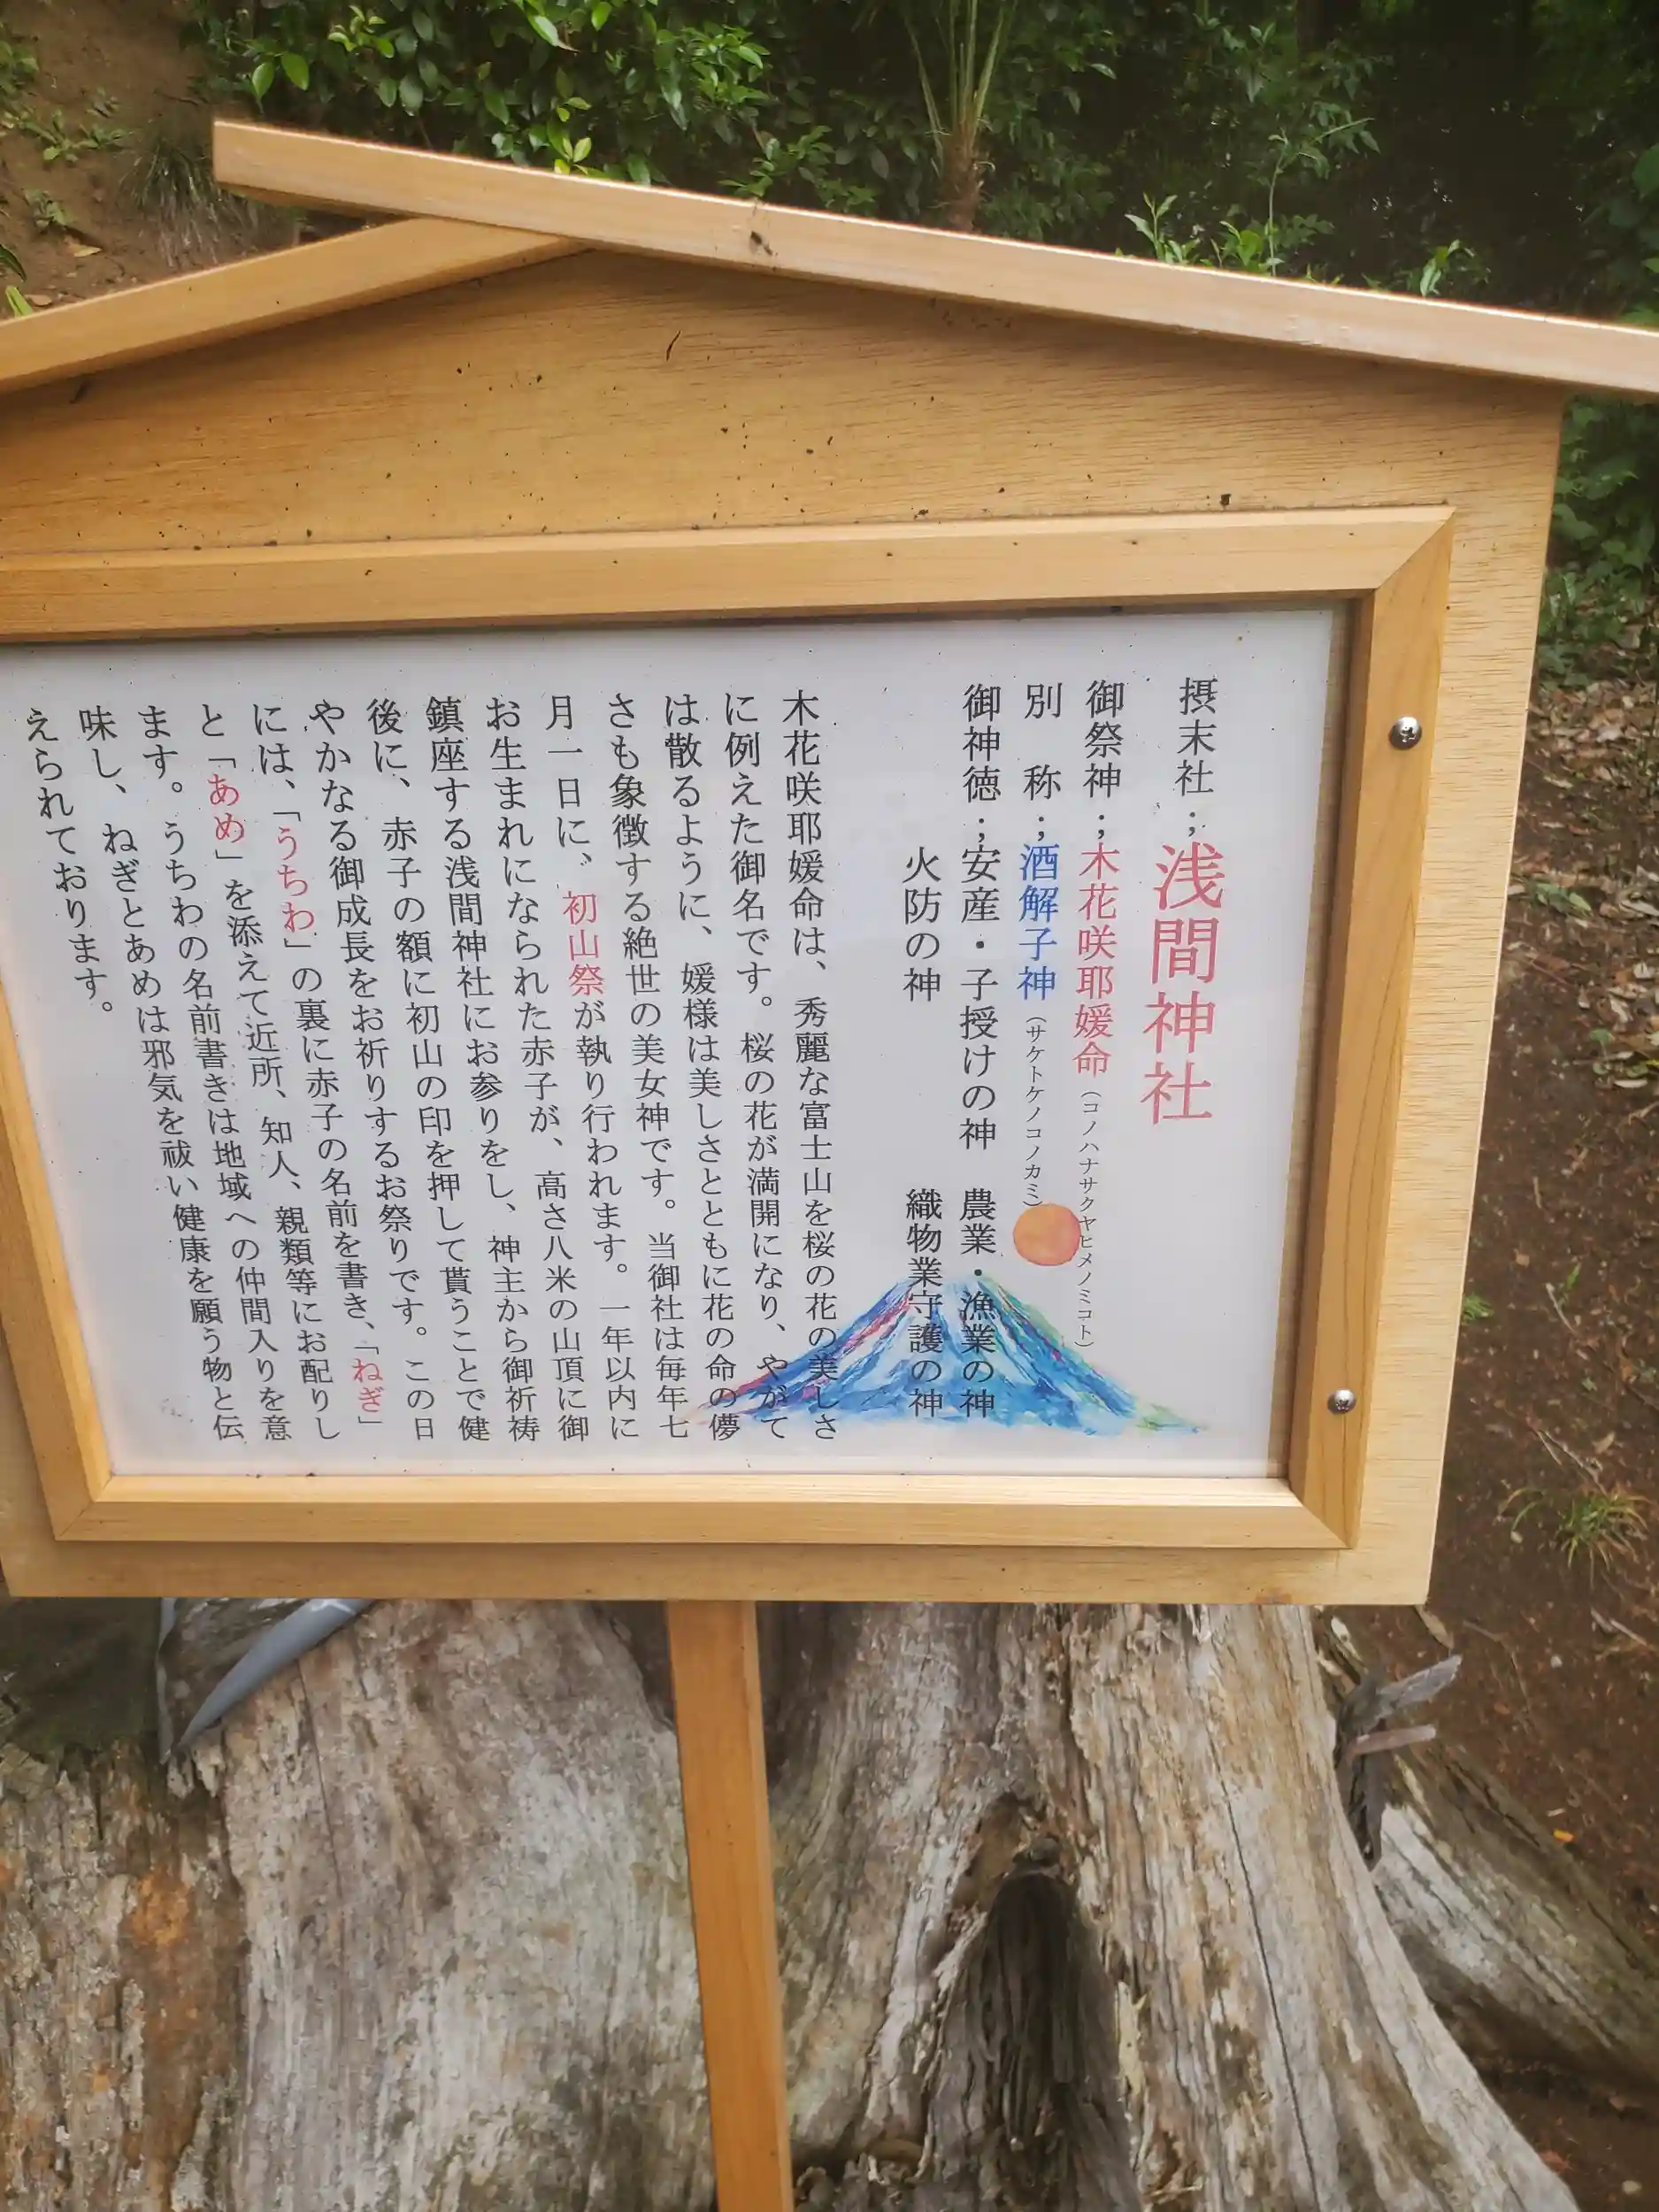 摂末社；浅間神社
御祭神；木花咲耶媛命（コノハナサクヤヒメノミコト）
別　称；酒解子神（サケトケノコノカミ）
御神徳；安産・子授けの神　農業・漁業の神
火防の神　織物業守護の神
木花咲耶媛命は、秀麗な富士山を桜の花の美しさ
に例えた御名です。桜の花が満開になり、やがて
は散るように、媛様は美しさとともに花の命の儚
さも象徴する絶世の美女神です。当御社は毎年七
月一日に、初山祭が執り行われます。一年以内に
お生まれになられた赤子が、高さ八米の山頂に御
鎮座する浅間神社にお参りをし、神主から御祈祷
後に、赤子の額に初山の印を押して貰うことで健
やかなる御成長をお祈りするお祭りです。この日
には、「うちわ」の裏に赤子の名前を書き、「ねぎ」
と「あめ」を添えて近所、知人、親類等にお配りし
ます。うちわの名前書きは地域への仲間入りを意
味し、ねぎとあめは邪気を祓い健康を願う物と伝
えられております。